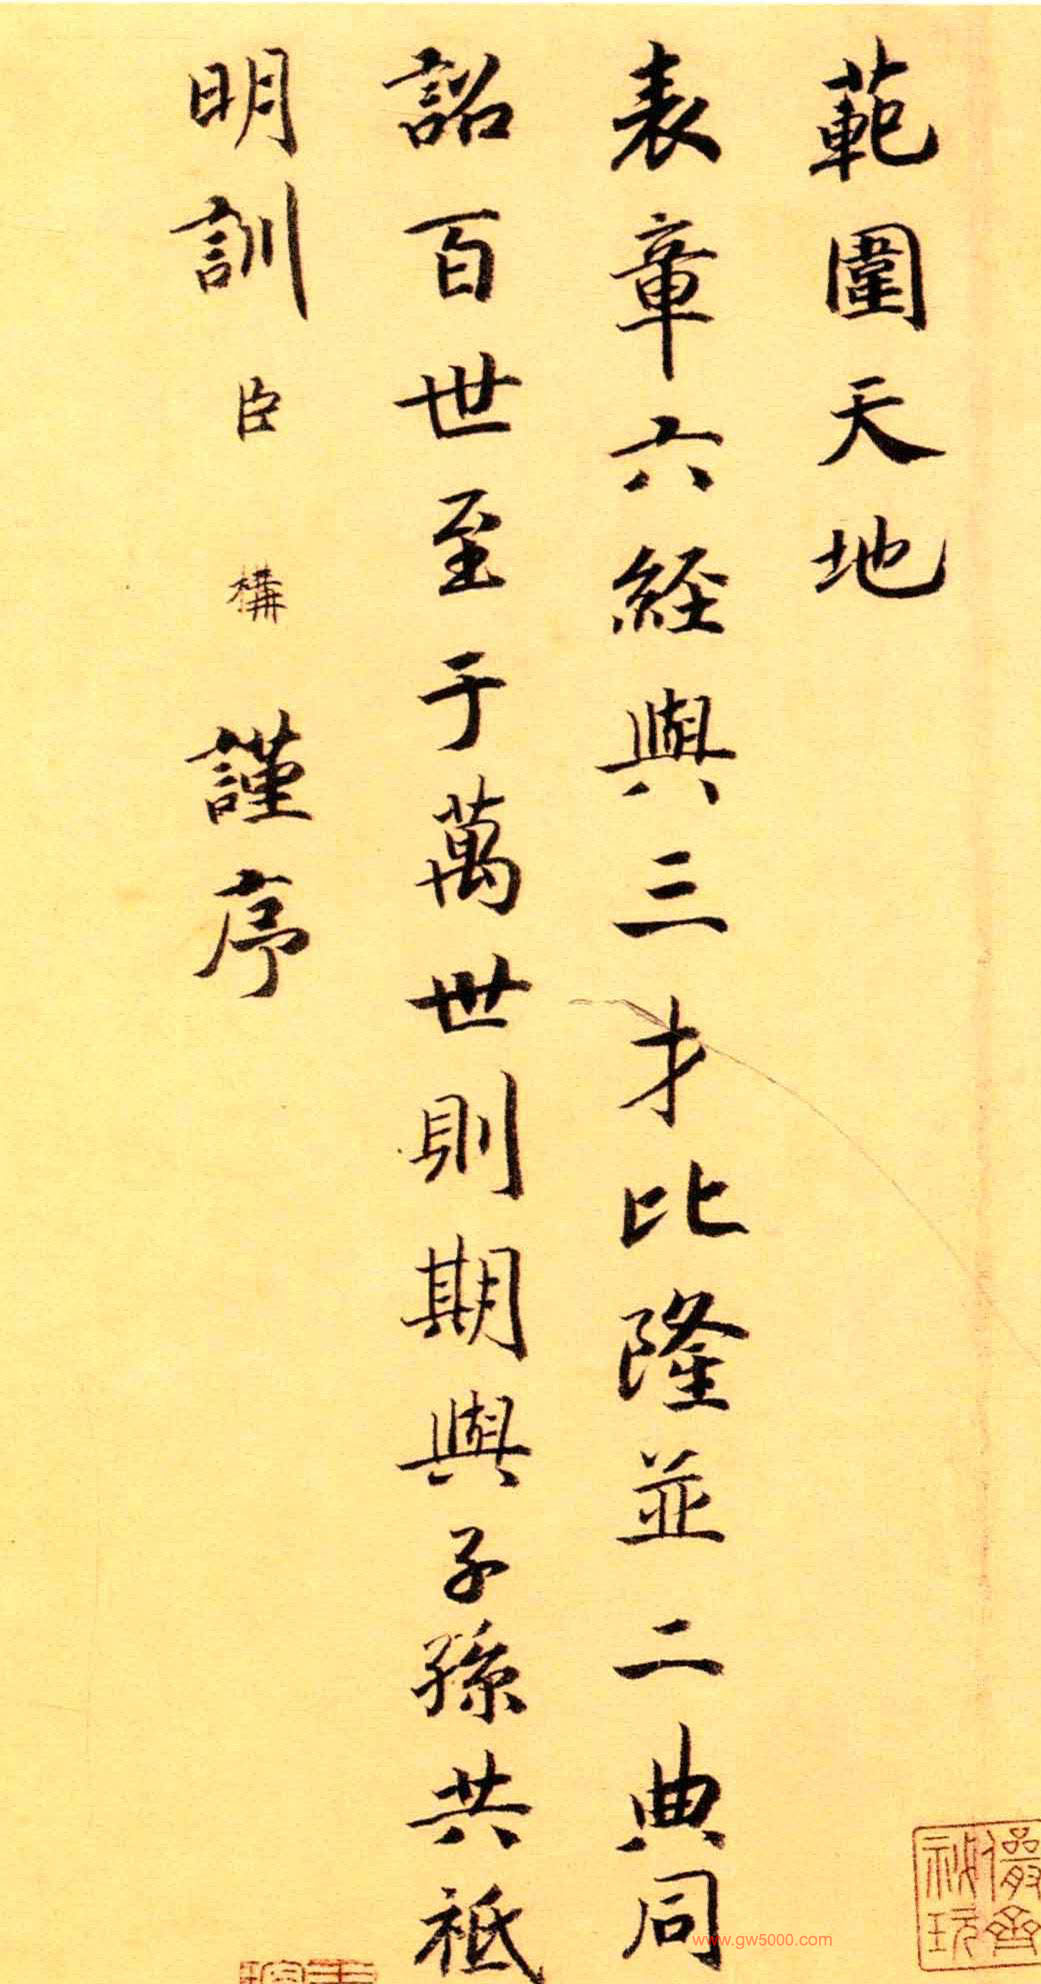 範圍天地
表章六經與三才比隆並二典同
詔百世至于萬世則期與子孫共祗
明訓臣構謹序
儼齋
秘玩
www.gw5000.com